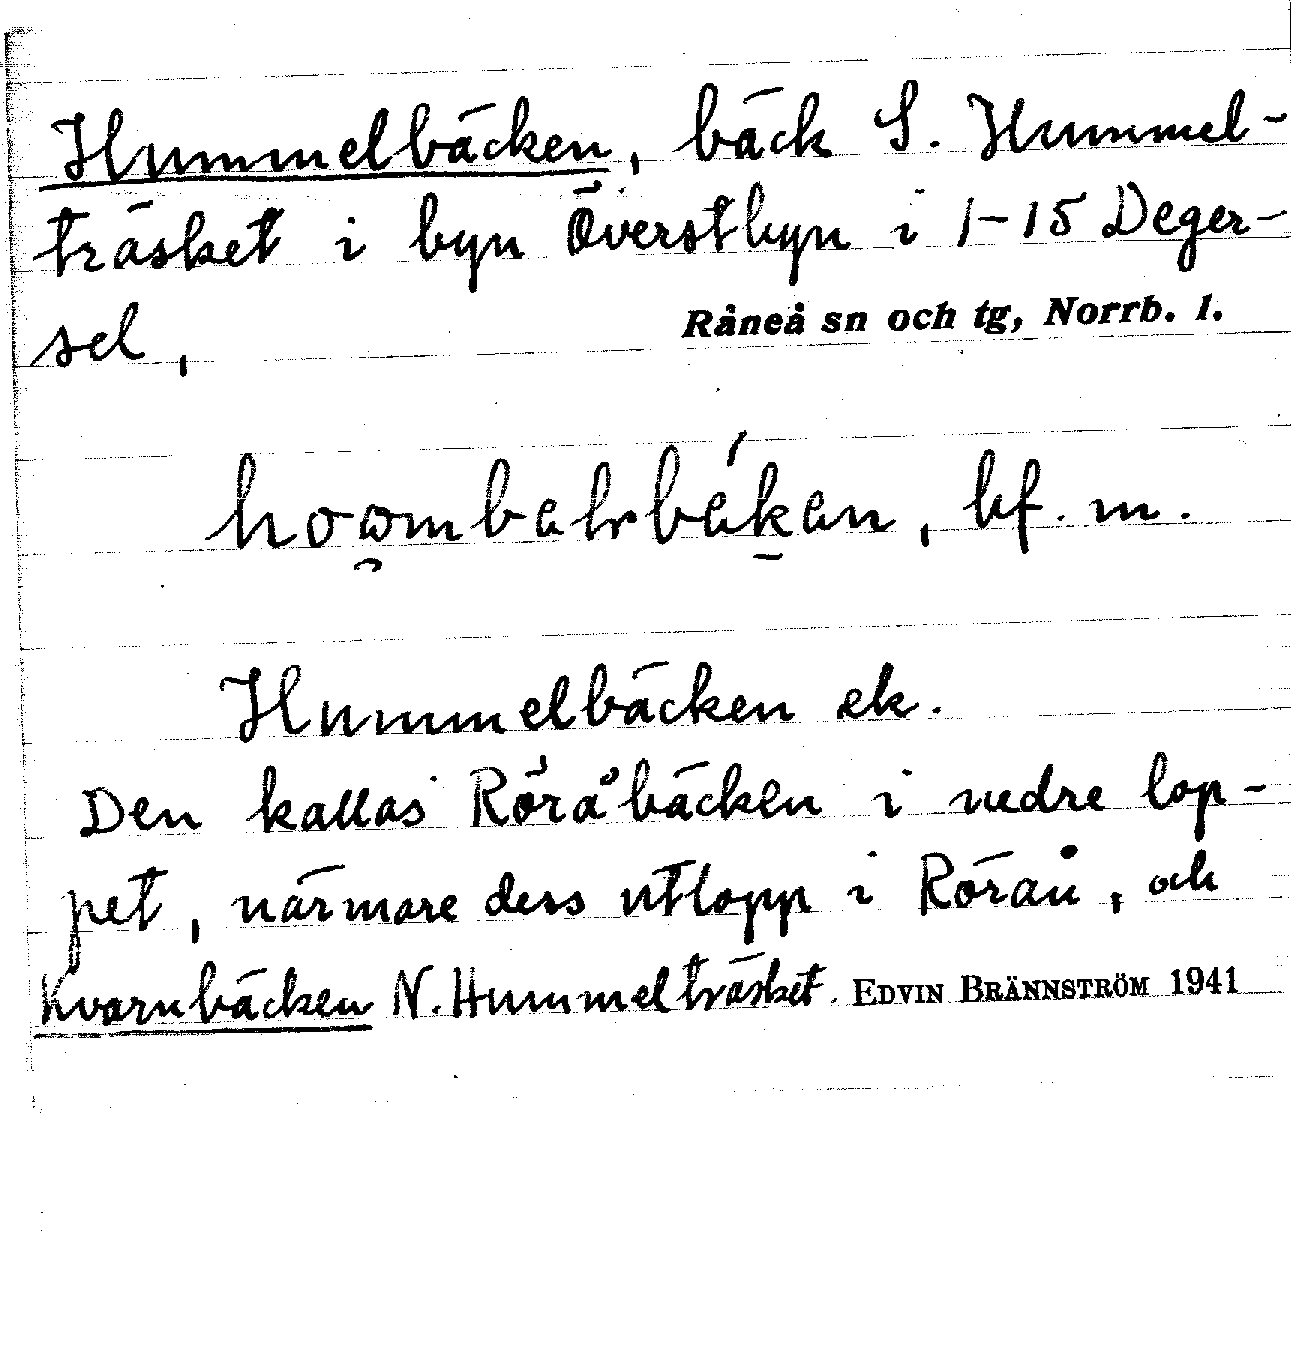 Hummelbäcken, bäck S. Hummel-
träsket i byn Överstbyn i 1-15 Deger-
sel, Råneå sn och tg, Norrb. l.
bf. m.
Hummelbäcken ek.
Den kallas Röråbäcken i nedre lop-
pet, närmare dess utlopp i Röråu, och
Kvarnbäcken N. Hummelträsket. EDVIN BRÄNNSTRÖM 1941